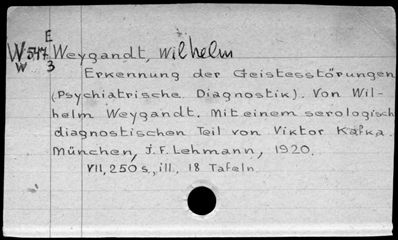 E
W 547 Weygandt, Wilhelm
W 3
Erkennung der Geistesstörungen
(Psychiatrische Diagnostik). Von Wil-
helm Weygandt. Mit einem serologisch
diagnostischen Teil von Viktor Kafka.
München, J.F. Lehmann, 1920.
VII, 250 s., ill., 18 Tafeln